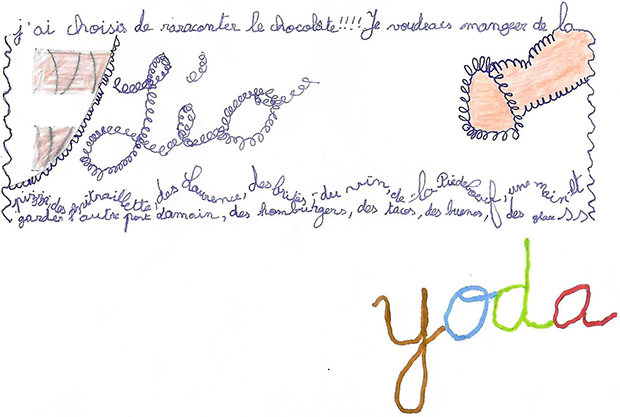 j'ai choisis de raraconter le chocolate!!!! Je voudeais mangeer de la
Léo
pizza, des mitraillette, des Laurence, des frites, du vin, de la Pièdeboeuf, une main et
garder l'autre pour demain, des hombürgers, des tacos, des buenos, des glaces
yoda